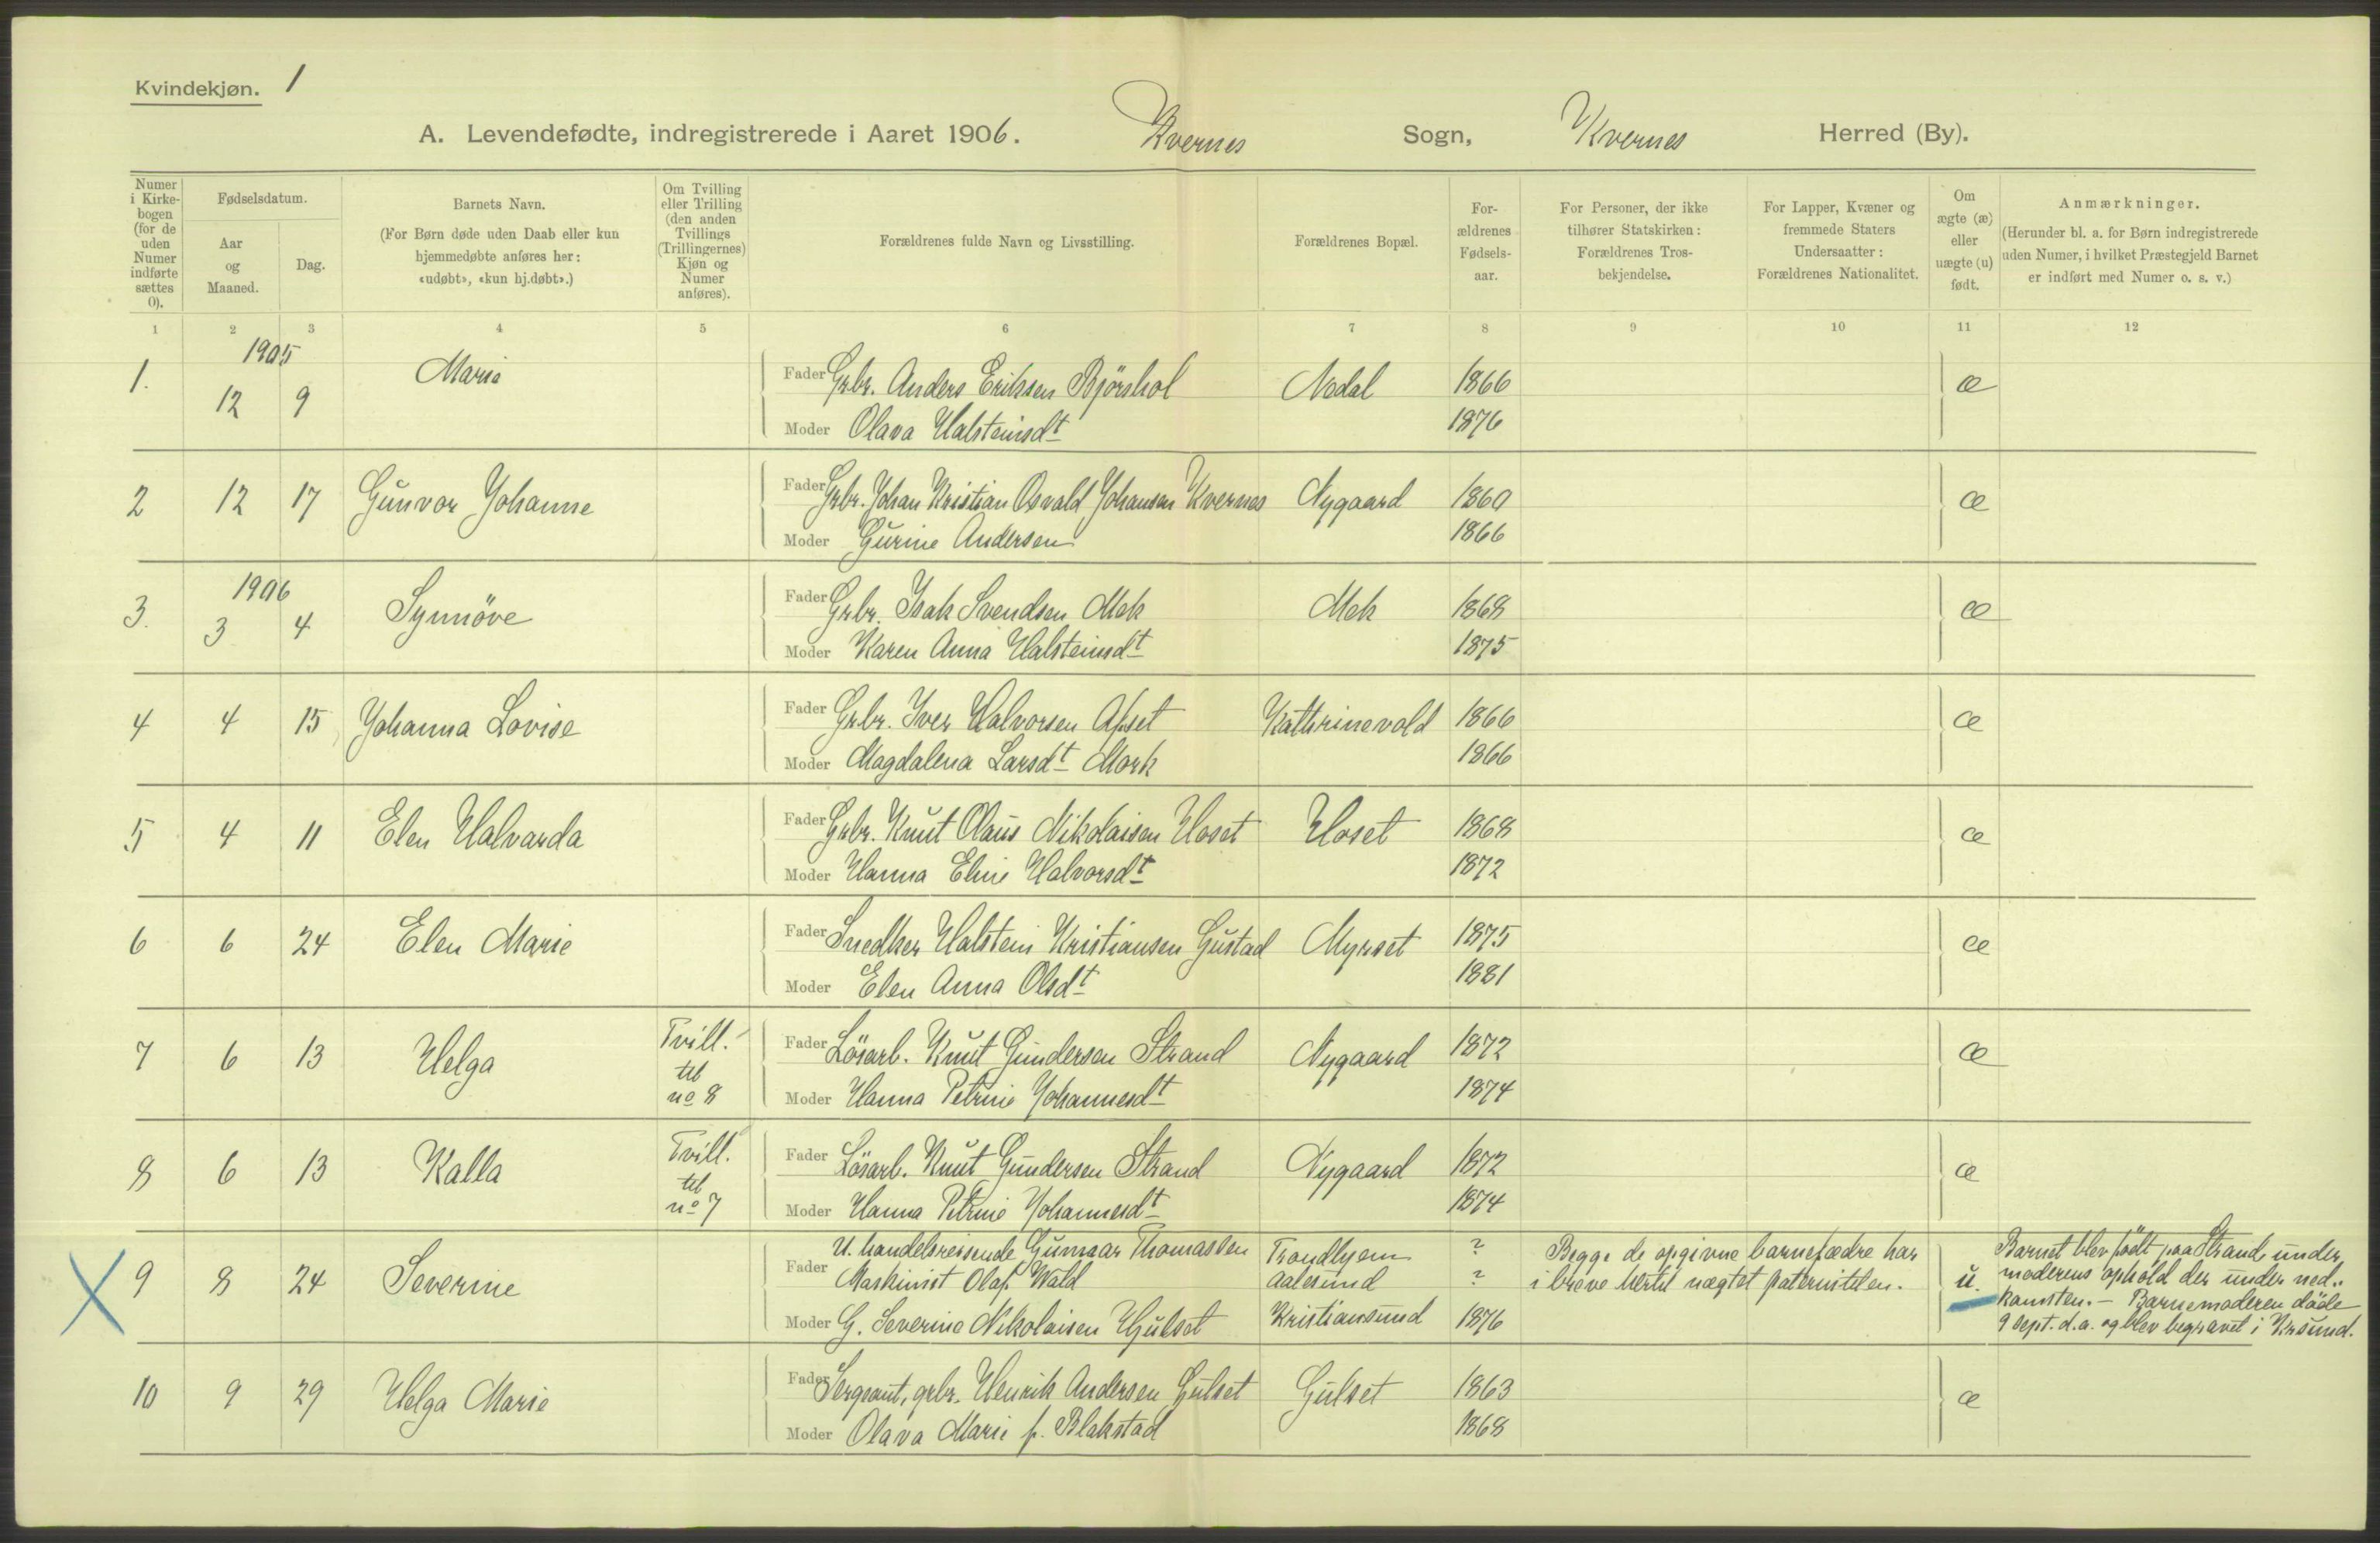 Kvindekjøn. 1
A. Levendefødte, indregistrerede i Aaret 1906. Kvernes Sogn, Kvernes Herred (By).
Numer i Kirke-bogen (for de uden Numer indførte sættes 0).
Fødselsdatum.
Aar og Maaned.
Dag.
Barnets Navn.
(For Børn døde uden Daab eller kun hjemmedøbte anføres her: «udøbt», «kun hj.døbt».)
Om Tvilling eller Trilling (den anden Tvillings (Trillingernes) Kjøn og Numer anføres).
Forældrenes fulde Navn og Livsstilling.
Forældrenes Bopæl.
For-ældrenes Fødsels-aar.
For Personer, der ikke tilhører Statskirken: Forældrenes Tros-bekjendelse.
For Lapper, Kvæner og fremmede Staters Undersaatter: Forældrenes Nationalitet.
Om ægte (æ) eller uægte (u) født.
Anmærkninger.
(Herunder bl. a. for Børn indregistrerede uden Numer, i hvilket Præstegjeld Barnet er indført med Numer o. s. v.)
1 2 3 4 5 6 7 8 9 10 11 12
1905
1. 12 9 Marie Fader Grbr. Anders Eriksen Bjørshol Nodal 1866 æ
Moder Olava Halsteinsdt 1876
2 12 17 Gunvor Johanne Fader Grbr. Johan Kristian Osvald Johansen Kvernes Nygaard 1860 æ
Moder Gurine Andersen 1866
1906
3. 3 4 Synnöve Fader Grbr. Isak Svendsen Mek Mek 1868 æ
Moder Karen Anna Halsteinsdt 1875
4 4 15 Johanna Lovise Fader Grbr. Iver Halvorsen Apset Kathrinevold 1866 æ
Moder Magdalena Larsdt Mork 1866
5 4 11 Elen Halvarda Fader Grbr. Knut Olaus Nikolaisen Hoset Hoset 1868 æ
Moder Hanna Eline Halvorsdt 1872
6 6 24 Elen Marie Fader Snedker Halstein Kristiansen Gustad Myrset 1875 æ
Moder Elen Anna Olsdt 1881
7 6 13 Helga Tvill. til no 8 Fader Lösarb. Knut Gundersen Strand Nygaard 1872 æ
Moder Hanna Petrine Johannesdt 1874
8 6 13 Kalla Tvill. til no 7 Fader Lösarb. Knut Gundersen Strand Nygaard 1872 æ
Moder Hanna Petrine Johannesdt 1874
9 8 24 Severine Fader U. handelsreisende Gunnar Thomassen Trondhjem ? Begge de opgivne barnefædre har u. Barnet blev födt paa Strand under
Maskinist Olaf Wald Aalesund ? i breve hertil nægtet paterniteten. moderens ophold der under ned-
Moder G. Severine Nikolaisen Gulset Kristiansund 1876 komsten. - Barnemoderen döde
9 sept. d.a. og blev begravet i Krsund.
10 9 29 Helga Marie Fader Sergeant, grbr. Henrik Andersen Gulset Gulset 1863 æ
Moder Olava Marie f. Blakstad 1868